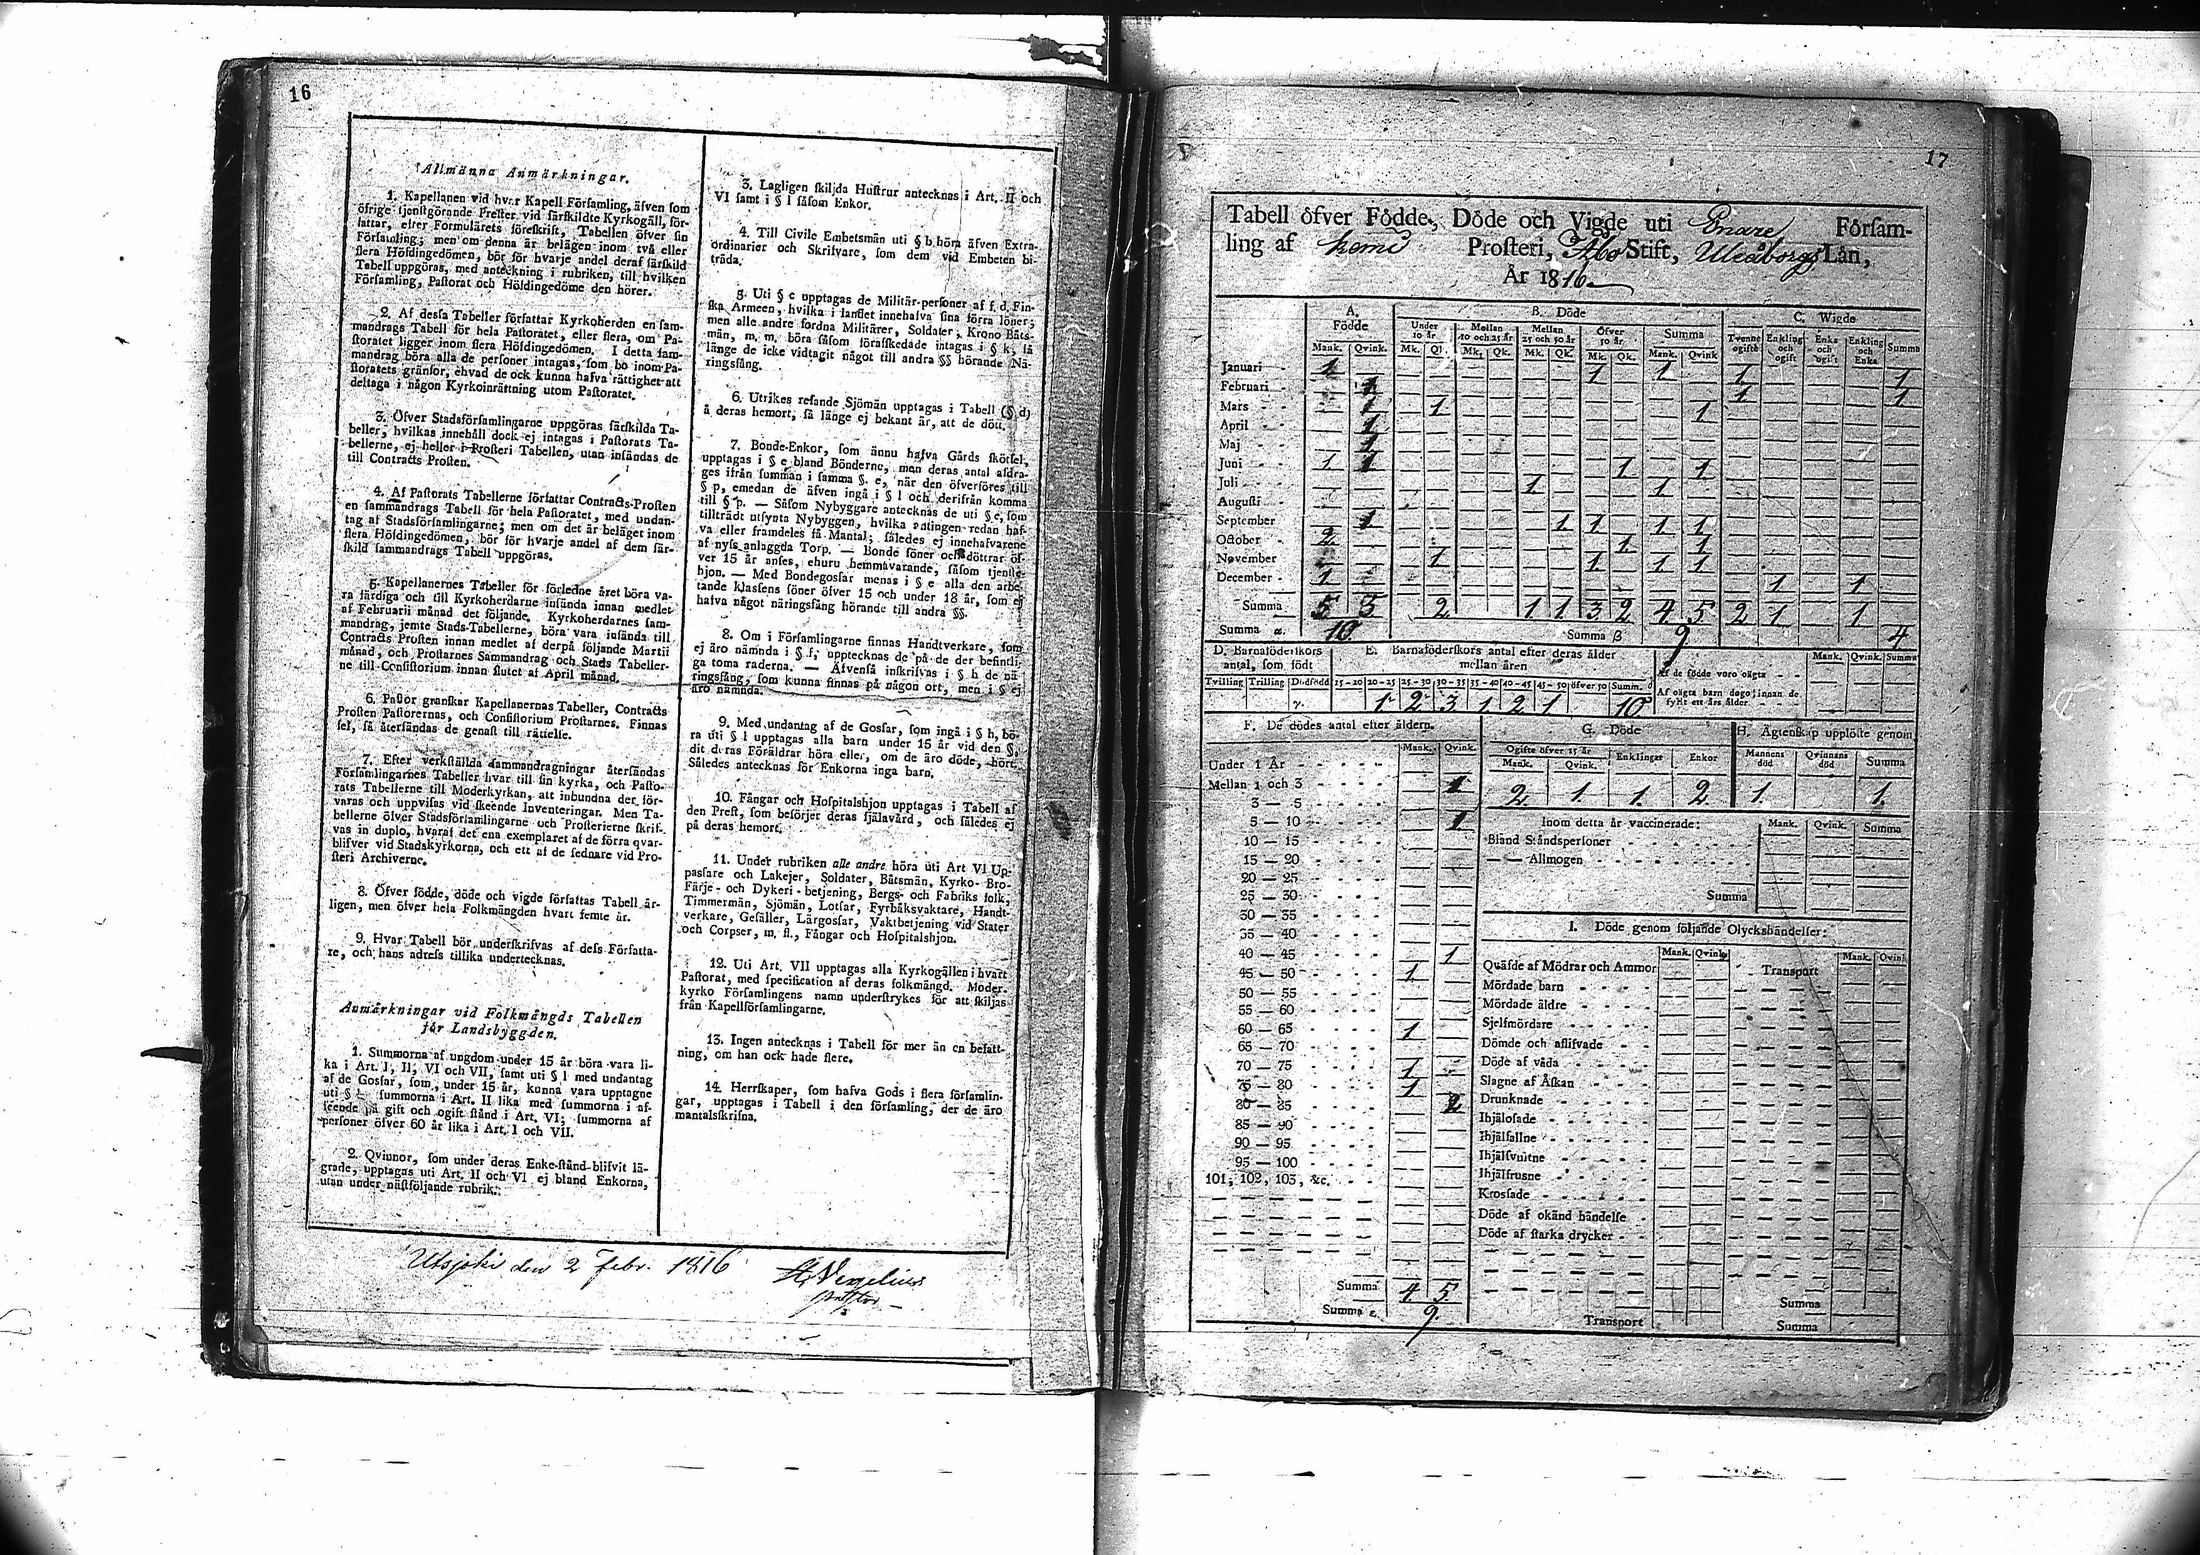 16
Allmänna Anmärkningar.
1. Kapellanen vid hvar Kapell Församling, äfven som
öfrige tjenstgörande Prester vid särskildte Kyrkogäll, för-
fattar, efter Formulärets föreskrift, Tabellen öfver sin
Församling; men om denna är belägen inom två eller
flera Höfdingedömen, bör för hvarje andel deraf särskild
Tabell uppgöras, med anteckning i rubriken, till hvilken
Församling, Pastorat och Höfdingedöme den hörer.
2. Af dessa Tabeller författar Kyrkoherden en sam-
mandrags Tabell för hela Pastoratet, eller flera, om Pa-
storatet ligger inom flera Höfdingedömen. I detta sam-
mandrag böra alla de personer intagas, som bo inom Pa-
storatets gränsor, ehvad de ock kunna hafva rättighet att
deltaga i någon Kyrkoinrättning utom Pastoratet.
3. Öfver Stadsförsamlingarne uppgöras särskilda Ta-
beller, hvilkas innehåll dock ej intagas i Pastorats Ta-
bellerne, ej heller i Prosteri Tabellen, utan insändas de
till Contracts Prosten.
4. Af Pastorats Tabellerne författar Contracts-Prosten
en sammandrags Tabell för hela Pastoratet, med undan-
tag af Stadsförsamlingarne; men om det är beläget inom
flera Höfdingedömen, bör för hvarje andel af dem sär-
skild sammandrags Tabell uppgöras.
5. Kapellanernes Tabeller för förledne året böra va-
ra färdiga och till Kyrkoherdarne insända innan medlet
af Februarii månad det följande. Kyrkoherdarnes sam-
mandrag, jemte Stads-Tabellerne, böra vara insända till
Contracts Prosten innan medlet af derpå följande Martii
månad, och Prostarnes Sammandrag och Stads Tabeller-
ne till Consistorium innan slutet af April månad.
6. Pastor granskar Kapellanernas Tabeller, Contracts
Prosten Pastorernas, och Consistorium Prostarnes. Finnas
fel, så återsändas de genast till rättelse.
7. Efter verkställda sammandragningar återsändas
Församlingarnes Tabeller hvar till sin kyrka, och Pasto-
rats Tabellerne till Moderkyrkan, att inbundna der för-
varas och uppvisas vid skeende Inventeringar. Men Ta-
bellerne öfver Stadsförsamlingarne och Prosterierne skrif-
vas in duplo, hvaraf det ena exemplaret af de förra qvar-
blifver vid Stadskyrkorna, och ett af de sednare vid Pro-
steri Archiverne.
8. Öfver födde, döde och vigde författas Tabell år-
ligen, men öfver hela Folkmängden hvart femte år.
9. Hvar Tabell bör underskrifvas af dess Författa-
re, och hans adress tillika undertecknas.
Anmärkningar vid Folkmängds Tabellen
för Landsbyggden.
1. Summorna af ungdom under 15 år böra vara li-
ka i Art. I, II, VI och VII, samt uti § l med undantag
af de Gossar, som, under 15 år, kunna vara upptagne
uti § summorna i Art. II lika med summorna i af-
seende på gift och ogift stånd i Art. VI; summorna af
personer öfver 60 år lika i Art. I och VII.
2. Qvinnor, som under deras Enke-stånd blifvit lä-
grade, upptagas uti Art. II och VI ej bland Enkorna,
utan under nästföljande rubrik.
3. Lagligen skiljda Hustrur antecknas i Art. II och
VI samt i § l såsom Enkor.
4. Till Civile Embetsmän uti § b höra äfven Extra-
ordinarier och Skrifvare, som dem vid Embeten bi-
träda.
5. Uti § c upptagas de Militär-personer af f. d. Fin-
ska Armeen, hvilka i landet innehafva sina förra löner;
men alle andre fordna Militärer, Soldater, Krono Båts-
män, m. m. böra såsom förafskedade intagas i § k, så
länge de icke vidtagit något till andra §§ hörande Nä-
ringsfång.
6. Utrikes resande Sjömän upptagas i Tabell (§ d)
å deras hemort, så länge ej bekant är, att de dött.
7. Bonde-Enkor, som ännu hafva Gårds skötsel,
upptagas i § e bland Bönderne, men deras antal afdra-
ges ifrån summan i samma §. e, när den öfverföres till
§ p, emedan de äfven ingå i § l och derifrån komma
till § p. — Såsom Nybyggare antecknas de uti § e, som
tillträdt utsynta Nybyggen, hvilka antingen redan haf-
va eller framdeles få Mantal; således ej innehafvarene
af nyss anlaggda Torp. — Bonde söner och döttrar öf-
ver 15 år anses, ehuru hemmavarande, såsom tjenste-
hjon. — Med Bondegossar menas i § e alla den arbe-
tande klassens söner öfver 15 och under 18 år, som ej
hafva något näringsfång hörande till andra §§.
8. Om i Församlingarne finnas Handtverkare, som
ej äro nämnda i § f, upptecknas de på de der befintli-
ga toma raderna. — Äfvenså inskrifvas i § h de nä-
ringsfång, som kunna finnas på någon ort, men i § ej
äro nämnda.
9. Med undantag af de Gossar, som ingå i § h, bö-
ra uti § l upptagas alla barn under 15 år vid den §,
dit deras Föräldrar höra eller, om de äro döde, hört.
Således antecknas för Enkorna inga barn.
10. Fångar och Hospitalshjon upptagas i Tabell af
den Prest, som besörjer deras själavård, och således ej
på deras hemort.
11. Under rubriken alle andre höra uti Art VI Up-
passare och Lakejer, Soldater, Båtsmän, Kyrko- Bro-
Färje- och Dykeri-betjening, Bergs- och Fabriks folk,
Timmermän, Sjömän, Lotsar, Fyrbåksvaktare, Handt-
verkare, Gesäller, Lärgossar, Vaktbetjening vid Stater
och Corpser, m. fl., Fångar och Hospitalshjon.
12. Uti Art. VII upptagas alla Kyrkogällen i hvart
Pastorat, med specification af deras folkmängd. Moder-
kyrko Församlingens namn understrykes för att skiljas
från Kapellförsamlingarne.
13. Ingen antecknas i Tabell för mer än en befatt-
ning, om han ock hade flere.
14. Herrskaper, som hafva Gods i flera församlin-
gar, upptagas i Tabell i den församling, der de äro
mantalsskrifna.
Utsjoki den 2 Febr. 1816
pastor
17
Tabell öfver Födde, Döde och Vigde uti Enare Försam-
ling af Kemi Prosteri, Åbo Stift, Uleåborgs Län,
År 1816
A. Födde B. Döde C. Wigde
Under 10 år Mellan 10 och 25 år Mellan 25 och 50 år Öfver 50 år Summa Tvenne ogifte Enkling och ogift Enka och ogift Enkling och Enka Summa
Mank. Qvink. Mk. Qk. Mk. Qk. Mk. Qk. Mk. Qk. Mank. Qvink
Januari 1 1 1 1 1
Februari 1 1 1
Mars 1 1 1
April 1
Maj 1
Juni 1 1 1 1
Juli 1 1
Augusti
September 1 1 1 1 1
October 2 1 1
November 1 1 1 1
December 1 1 1
Summa 5 5 2 1 1 3 2 4 5 2 1 1
Summa α. 10. Summa β 9 4
D. Barnaföderskors antal, som födt E. Barnaföderskors antal efter deras ålder mellan åren Mank. Qvink. Summa
Tvilling Trilling Dödfödd 15-20 20-25 25-30 30-35 35-40 40-45 45-50 öfver 50 Summ.
Af de födde voro oägta
Af oägta barn dogo innan de fyllt ett års ålder
γ. 1 2 3 1 2 1 10
F. De dödes antal efter åldern. G. Döde H. Ägtenskap upplöste genom
Mank. Qvink. Ogifte öfver 15 år Enklingar Enkor Mannens död Qvinnans död Summa
Mank. Qvink.
Under 1 År
Mellan 1 och 3 1
2. 1. 1. 2. 1. 1.
3 — 5
5 — 10 1
10 — 15
15 — 20
20 — 25
25 — 30
30 — 35
35 — 40
40 — 45 1
45 — 50 1
50 — 55
55 — 60
60 — 65 1
65 — 70
70 — 75 1
75 — 80 1
80 — 85 2
85 — 90
90 — 95
95 — 100
101, 102, 103, &c.
Summa 4. 5.
Summa ε. 9.
Inom detta år vaccinerade: Mank. Qvink. Summa
Bland Ståndspersoner
— — Allmogen
Summa
I. Döde genom följande Olyckshändelser:
Mank. Qvink. Mank. Qvink
Quäfde af Mödrar och Ammor Transport
Mördade barn
Mördade äldre
Sjelfmördare
Dömde och aflifvade
Döde af våda
Slagne af Åskan
Drunknade
Ihjälosade
Ihjälfallne
Ihjälsvultne
Ihjälfrusne
Krossade
Döde af okänd händelse
Döde af starka drycker
Summa
Transport Summa